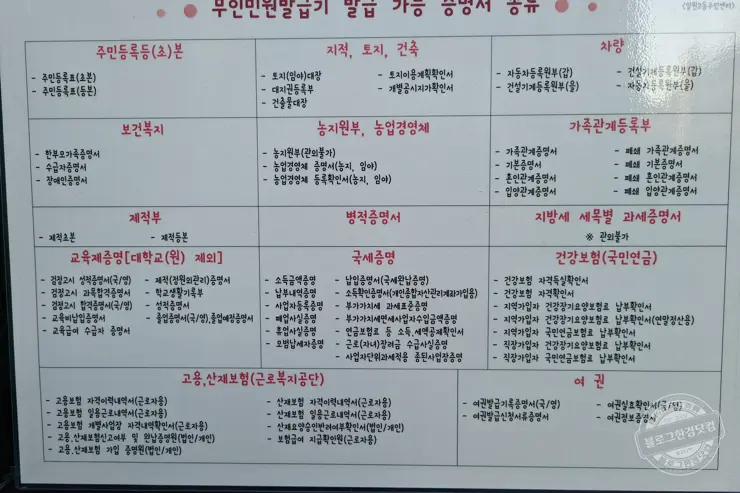 무인민원발급기 발급 가능 증명서 종류
주민등록등(초)본
- 주민등록표(초본)
- 주민등록표(등본)
지적, 토지, 건축
- 토지(임야)대장
- 대지권등록부
- 건축물대장
- 토지이용계획확인서
- 개별공시지가확인서
차량
- 자동차등록원부(갑)
- 건설기계등록원부(을)
- 건설기계등록원부(갑)
- 자동차등록원부(을)
보건복지
- 한부모가족증명서
- 수급자증명서
- 장애인증명서
농지원부, 농업경영체
- 농지원부(관외불가)
- 농업경영체 증명서(농지, 임야)
- 농업경영체 등록확인서(농지, 임야)
가족관계등록부
- 가족관계증명서
- 기본증명서
- 혼인관계증명서
- 입양관계증명서
- 폐쇄 가족관계증명서
- 폐쇄 기본증명서
- 폐쇄 혼인관계증명서
- 폐쇄 입양관계증명서
제적부
- 제적초본
- 제적등본
병적증명서
지방세 세목별 과세증명서
※ 관외불가
교육제증명[대학교(원) 제외]
- 검정고시 성적증명서(국/영)
- 검정고시 과목합격증명서
- 검정고시 합격증명서(국/영)
- 교육비납입증명서
- 교육급여 수급자 증명서
- 제적(정원외관리)증명서
- 학교생활기록부
- 성적증명서
- 졸업증명서(국/영),졸업예정증명서
국세증명
- 소득금액증명
- 납부내역증명
- 사업자등록증명
- 폐업사실증명
- 휴업사실증명
- 모범납세자증명
- 납입증명서(국세완납증명)
- 소득확인증명서(개인종합자산관리계좌가입용)
- 부가가치세 과세표준증명
- 부가가치세면세사업자수입금액증명
- 연금보험료 등 소득,세액공제확인서
- 근로(자녀)장려금 수급사실증명
- 사업자단위과세적용 종된사업장증명
건강보험(국민연금)
- 건강보험 자격득실확인서
- 건강보험 자격확인서
- 지역가입자 건강장기요양보험료 납부확인서
- 지역가입자 건강장기요양보험료 납부확인서(연말정산용)
- 지역가입자 국민연금보험료 납부확인서
- 직장가입자 건강장기요양보험료 납부확인서
- 직장가입자 국민연금보험료 납부확인서
고용,산재보험(근로복지공단)
- 고용보험 자격이력내역서(근로자용)
- 고용보험 일용근로내역서(근로자용)
- 고용보험 개별사업장 자격내역확인서(근로자용)
- 고용,산재보험신고여부 및 완납증명원(법인/개인)
- 고용,산재보험 가입 증명원(법인/개인)
- 산재보험 자격이력내역서(근로자용)
- 산재보험 일용근로내역서(근로자용)
- 산재요양승인반려여부확인서(법인/개인)
- 보험급여 지급확인원(근로자용)
여 권
- 여권발급기록증명서(국/영)
- 여권발급신청서류증명서
- 여권실효확인서(국/영)
- 여권정보증명서
블로그한경닷컴